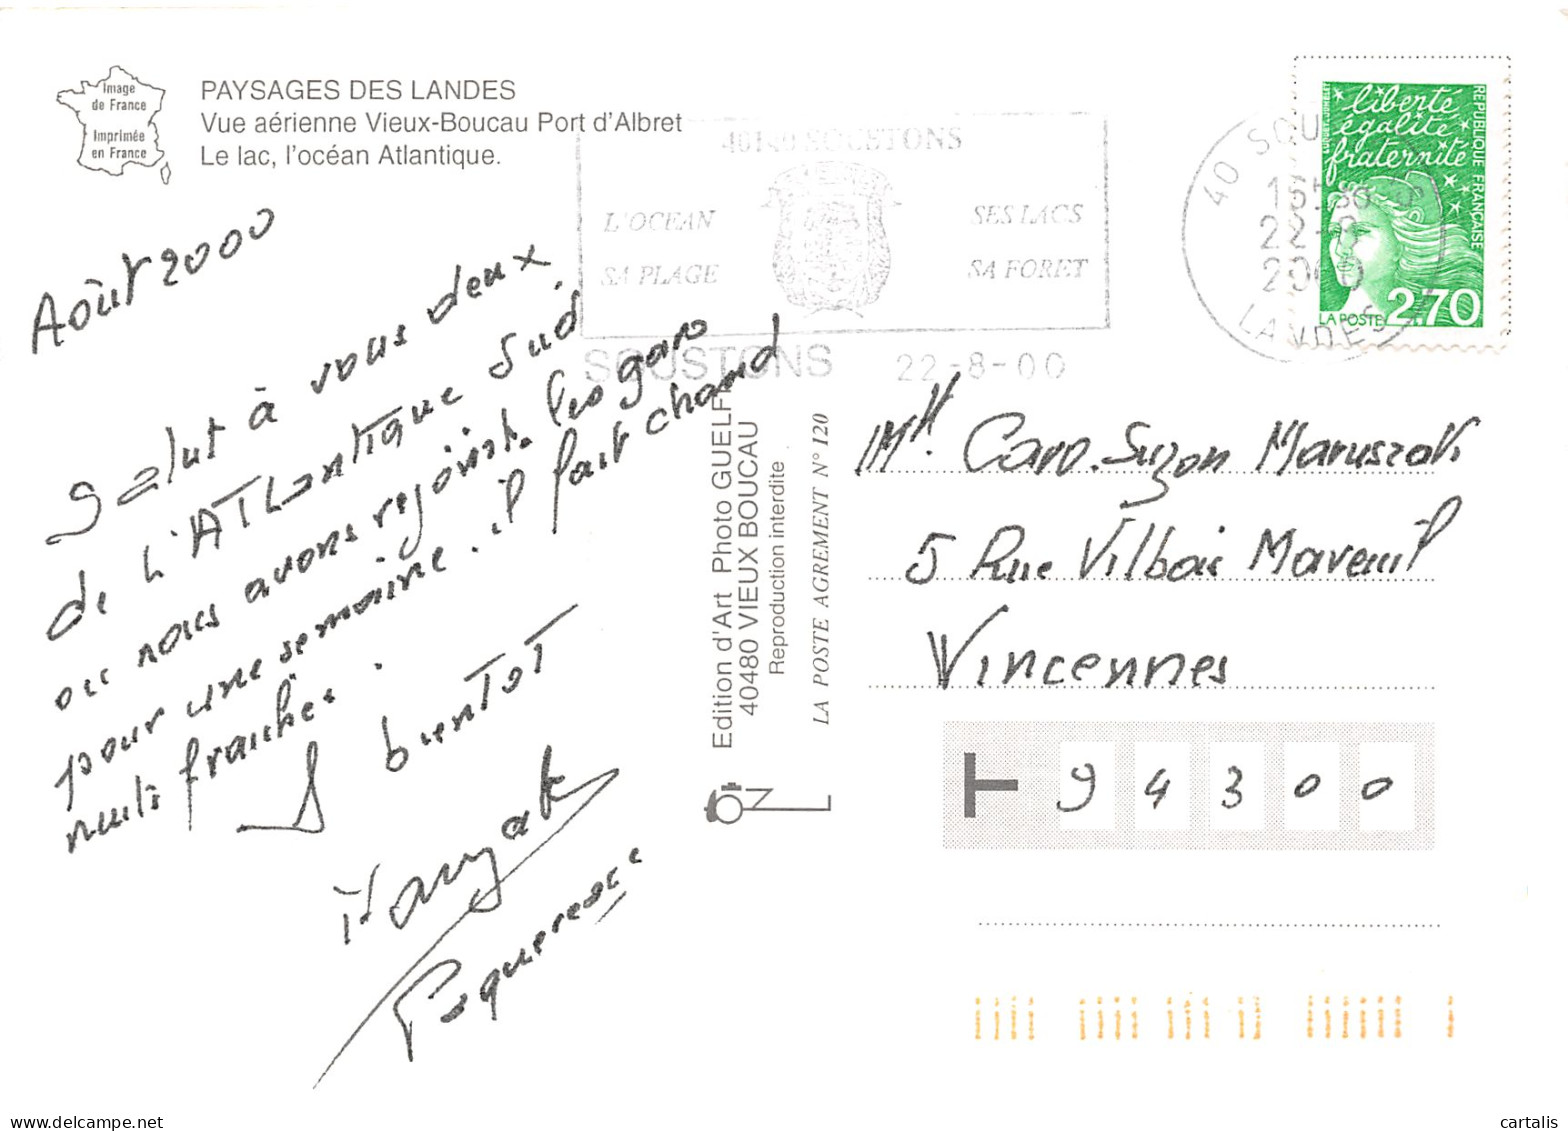 Image
de France
Imprimée
en France
PAYSAGES DES LANDES
Vue aérienne Vieux-Boucau Port d'Albret
Le lac, l'océan Atlantique.
40140 SOUSTONS
L'OCEAN
SA PLAGE
SES LACS
SA FORET
SOUSTONS 22-8-00
40 SOU
22-8
2000
LANDES
liberté
égalité
fraternité
REPUBLIQUE FRANÇAISE
LA POSTE 2,70
Août 2000
Salut à vous deux
de l'ATLantique Sud
ou nous avons rejoint les gars
pour une semaine. il fait chaud
nuits fraiches.
A bientot
Edition d'Art Photo GUELFF
40480 VIEUX BOUCAU
Reproduction interdite
LA POSTE AGREMENT N° 120
Caro. Suzon
5 Rue Vilboi Mareuil
Vincennes
94300
cartalis